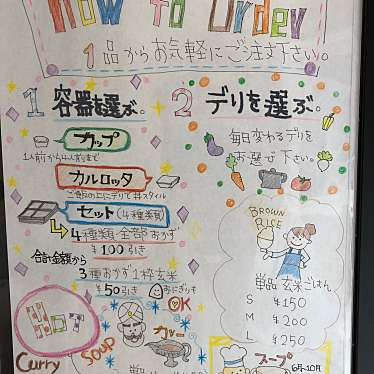 How to Order
1品からお気軽にご注文下さい。
1 容器を選ぶ。
カップ
1人前から4人前まで
カルロッタ
ご飯の上にデリで丼スタイル
セット(4種類)
4種類・全部おかず
¥100引き
合計金額から
3種おかず1枠玄米
¥50引き
おにぎりも
OK
2 デリを選ぶ。
毎日変わるデリを
お選び下さい。
BROWN
RISE
単品 玄米ごはん
S ¥150
M ¥200
L ¥250
Curry
Soup
カレー
スープ
6月〜10月